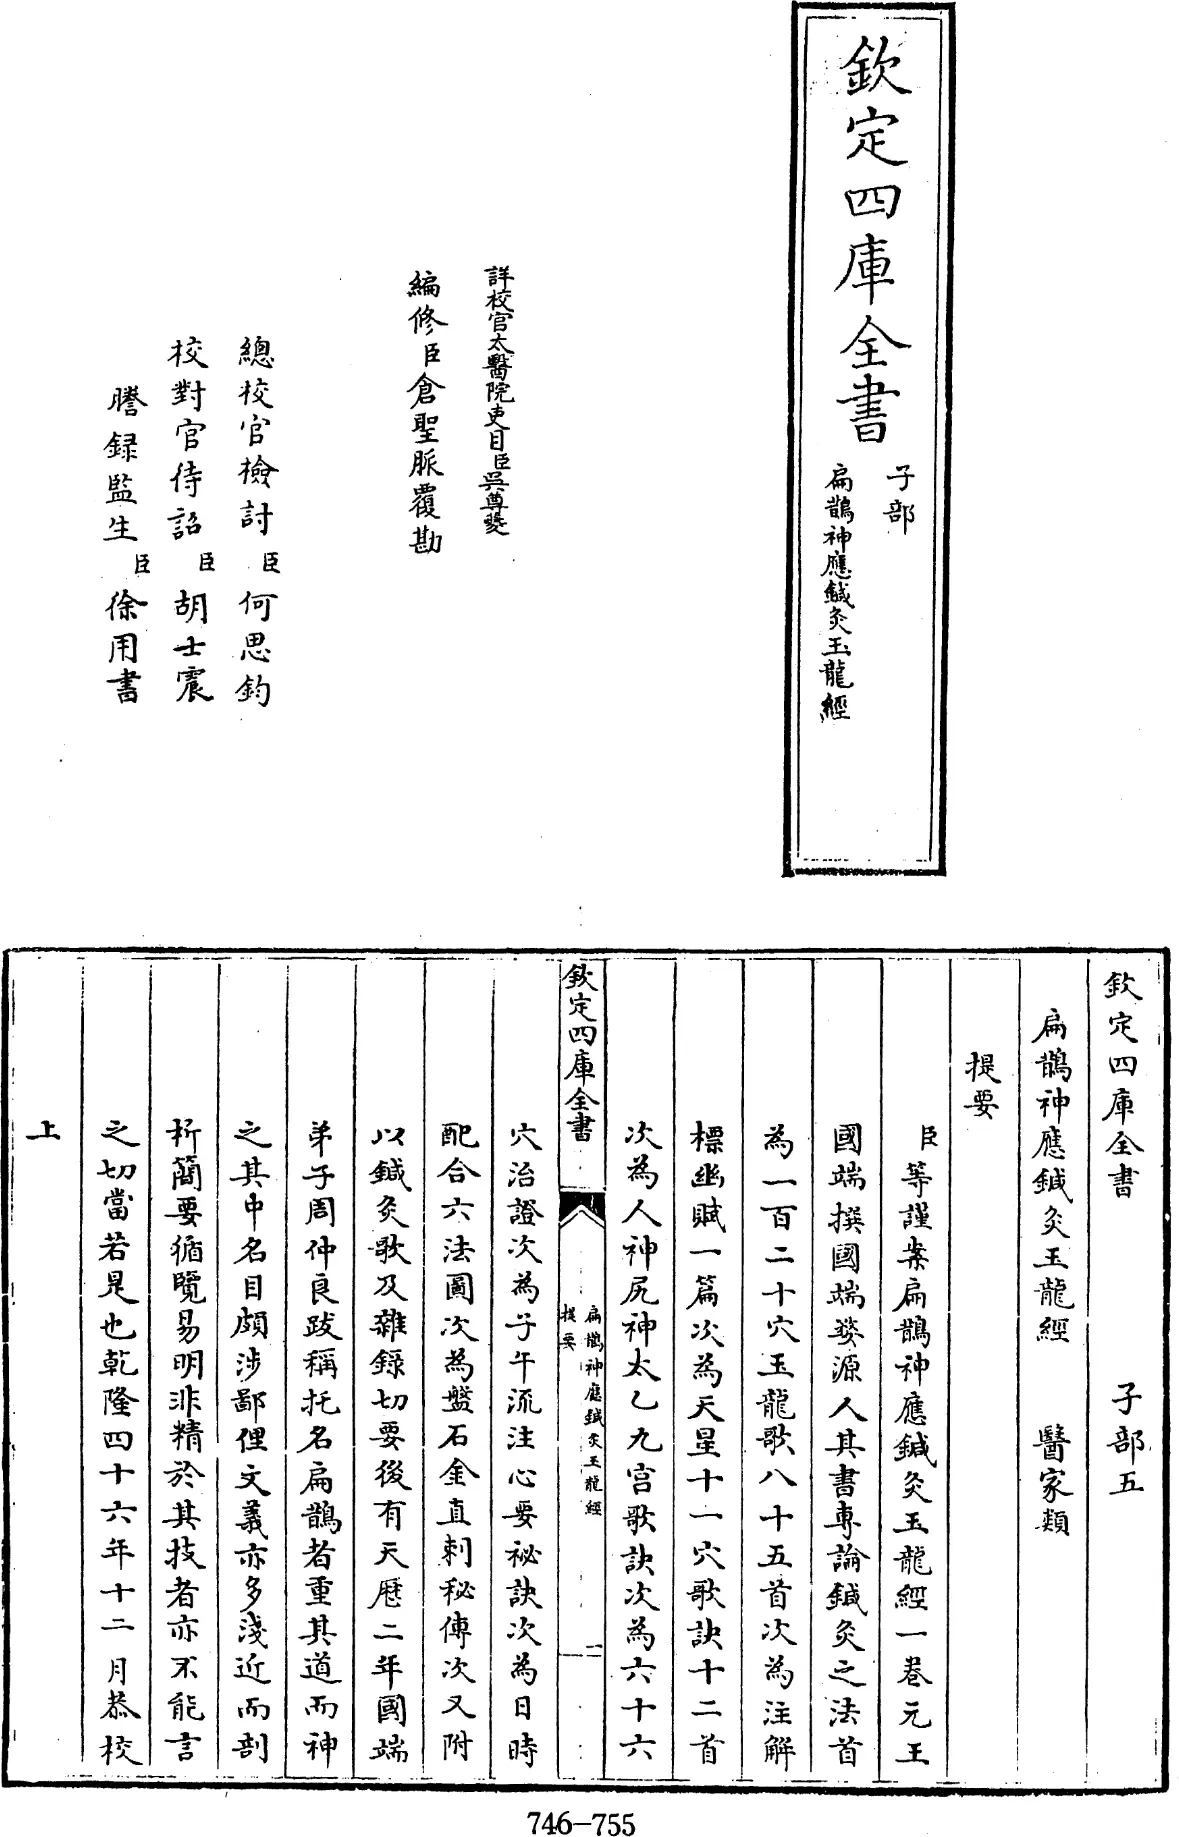 欽定四庫全書
子部
扁鵲神應鍼灸玉龍經
詳校官太醫院吏目臣吳尊夔
編修臣倉聖脈覆勘
總校官檢討臣何思鈞
校對官待詔臣胡士震
謄録監生臣徐用書
欽定四庫全書 子部五
扁鵲神應鍼灸玉龍經 醫家類
提要
臣等謹案扁鵲神應鍼灸玉龍經一卷元王
國端撰國端婺源人其書專論鍼灸之法首
為一百二十穴玉龍歌八十五首次為注解
標幽賦一篇次為天星十一穴歌訣十二首
次為人神尻神太乙九宫歌訣次為六十六
欽定四庫全書
扁鵲神應鍼灸玉龍經
提要
一
穴治證次為子午流注心要祕訣次為日時
配合六法圖次為盤石金直刺秘傳次又附
以鍼灸歌及雜錄切要後有天歷二年國端
弟子周仲良跋稱托名扁鵲者重其道而神
之其中名目頗涉鄙俚文義亦多淺近而剖
析簡要循覽易明非精於其技者亦不能言
之切當若是也乾隆四十六年十二月恭校
上
746-755